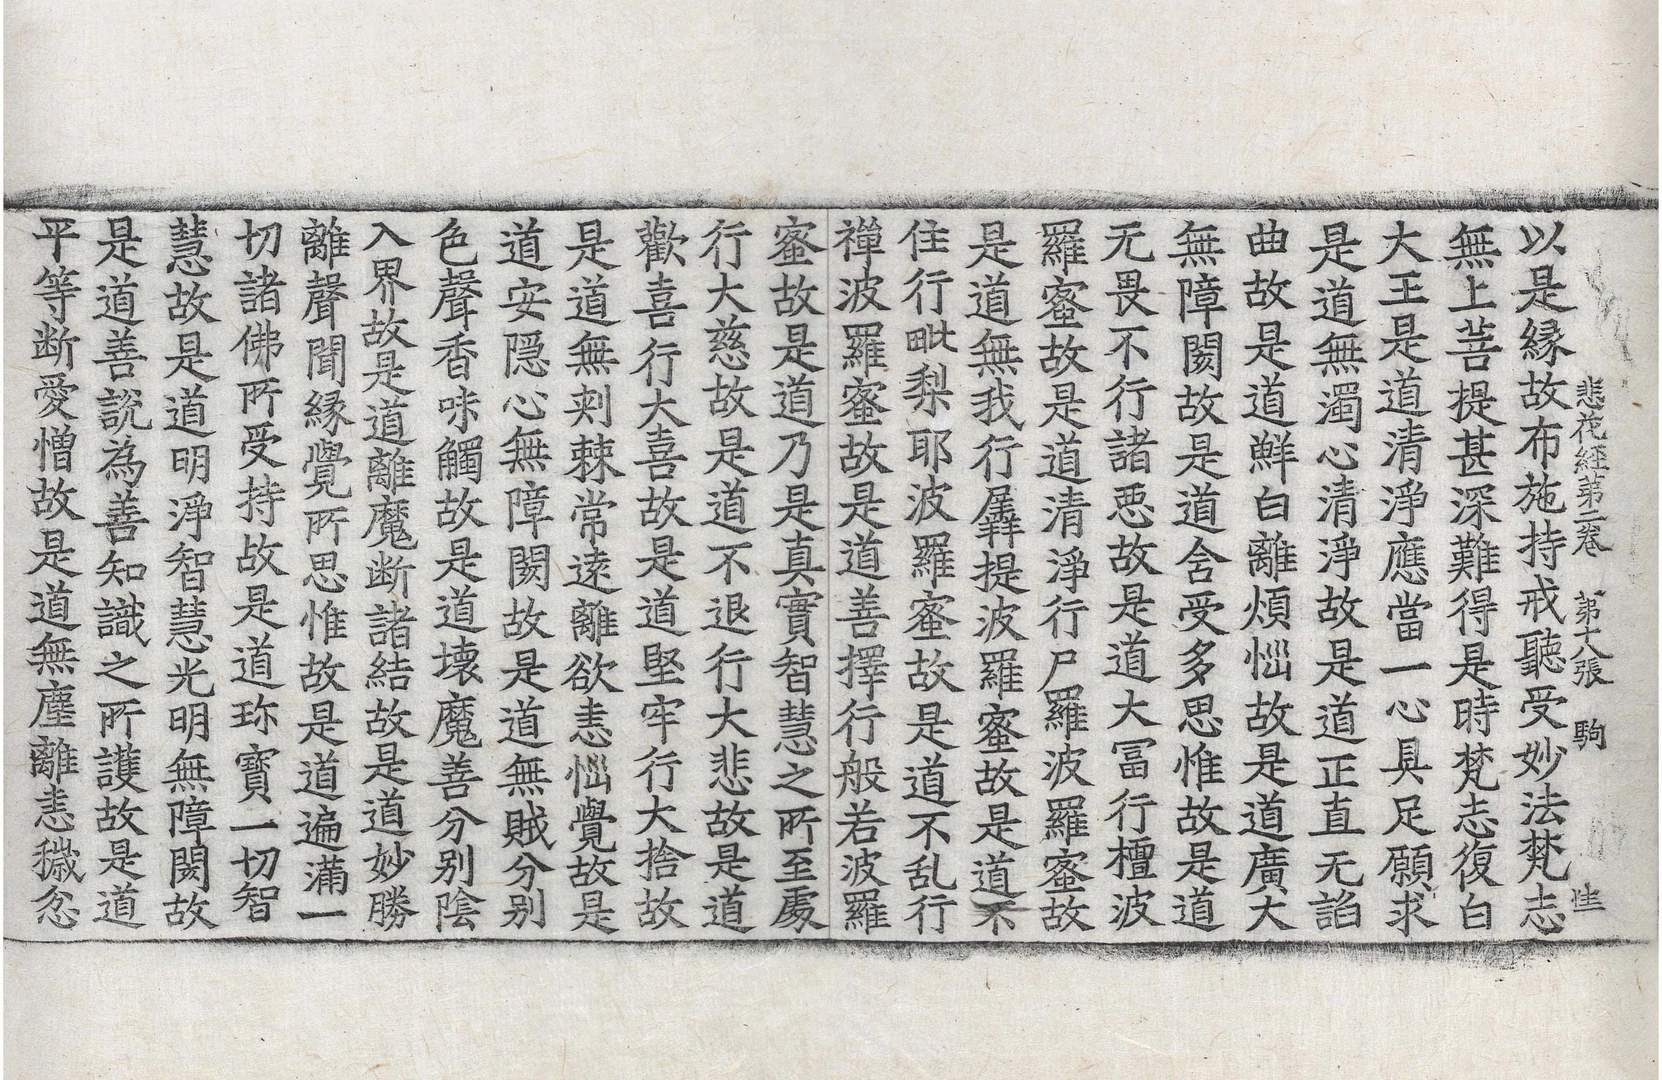 悲花經第二卷 第十八張 駒 㤬
以是縁故布施持戒聽受妙法梵志
無上菩提甚深難得是時梵志復白
大王是道清淨應當一心具足願求
是道無濁心清淨故是道正直无諂
曲故是道鮮白離煩惱故是道廣大
無障閡故是道含受多思惟故是道
无畏不行諸惡故是道大冨行檀波
羅蜜故是道清淨行尸羅波羅蜜故
是道無我行羼提波羅蜜故是道不
住行毗梨耶波羅蜜故是道不乱行
禪波羅蜜故是道善擇行般若波羅
蜜故是道乃是真實智慧之所至處
行大慈故是道不退行大悲故是道
歡喜行大喜故是道堅牢行大捨故
是道無刾棘常逺離欲恚惱覺故是
道安隱心無障閡故是道無賊分別
色聲香味觸故是道壊魔善分別陰
入界故是道離魔断諸結故是道妙勝
離聲聞縁覺所思惟故是道遍滿一
切諸佛所受持故是道珎寶一切智
慧故是道明淨智慧光明無障閡故
是道善說為善知識之所護故是道
平等断愛憎故是道無塵離恚穢忿